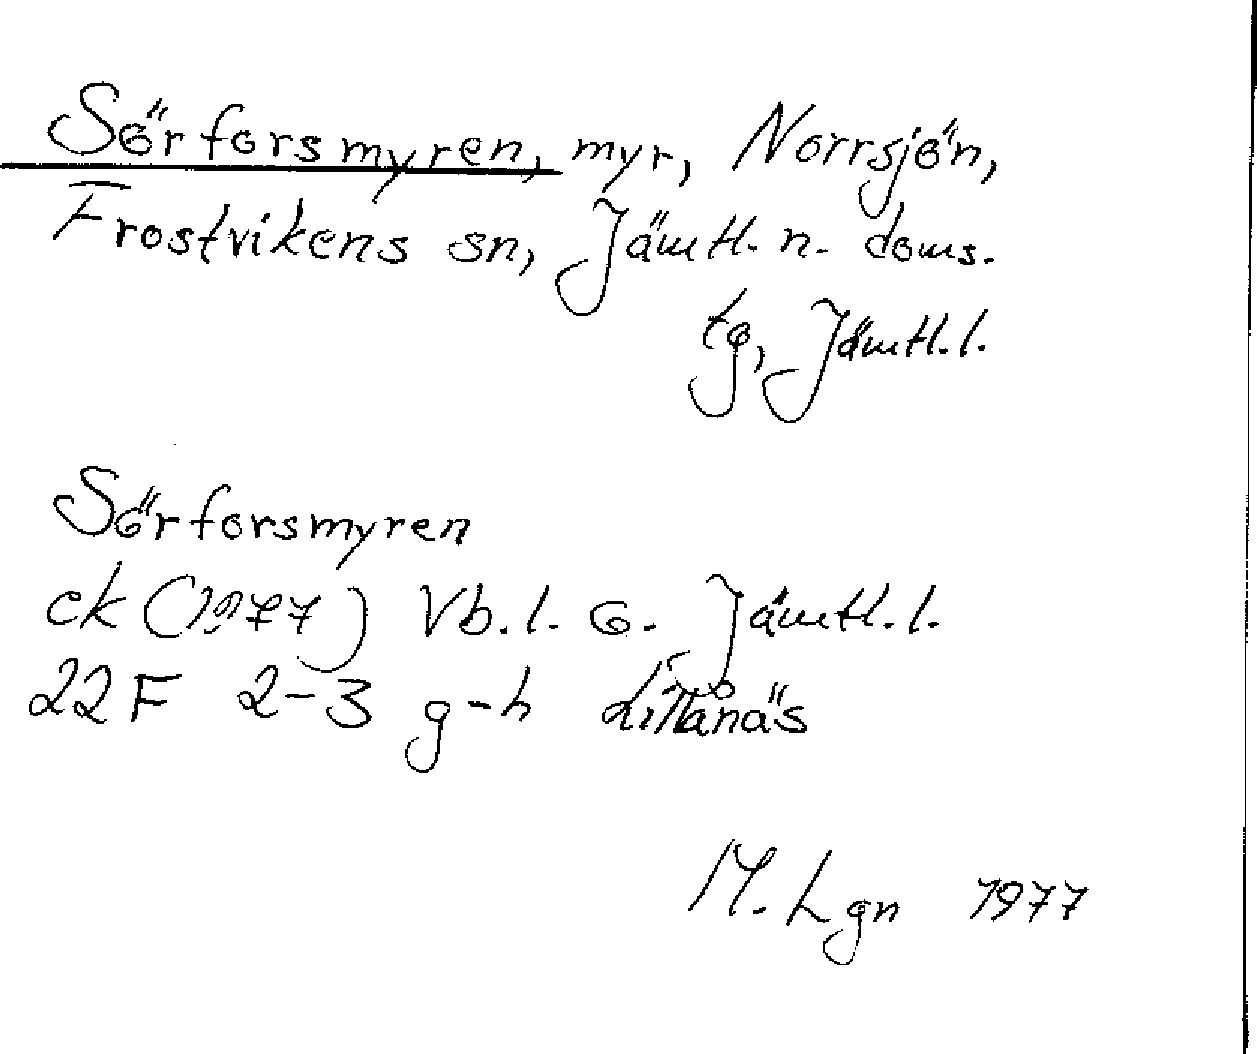 Sörforsmyren, myr, Norrsjön,
Frostvikens sn, Jämtl. n. doms.
tg, Jämtl. l.
Sörforsmyren
ek (1977) Vb. l. o. Jämtl. l.
22 F 2-3 g-h Lillånäs
M. Lgn 1977